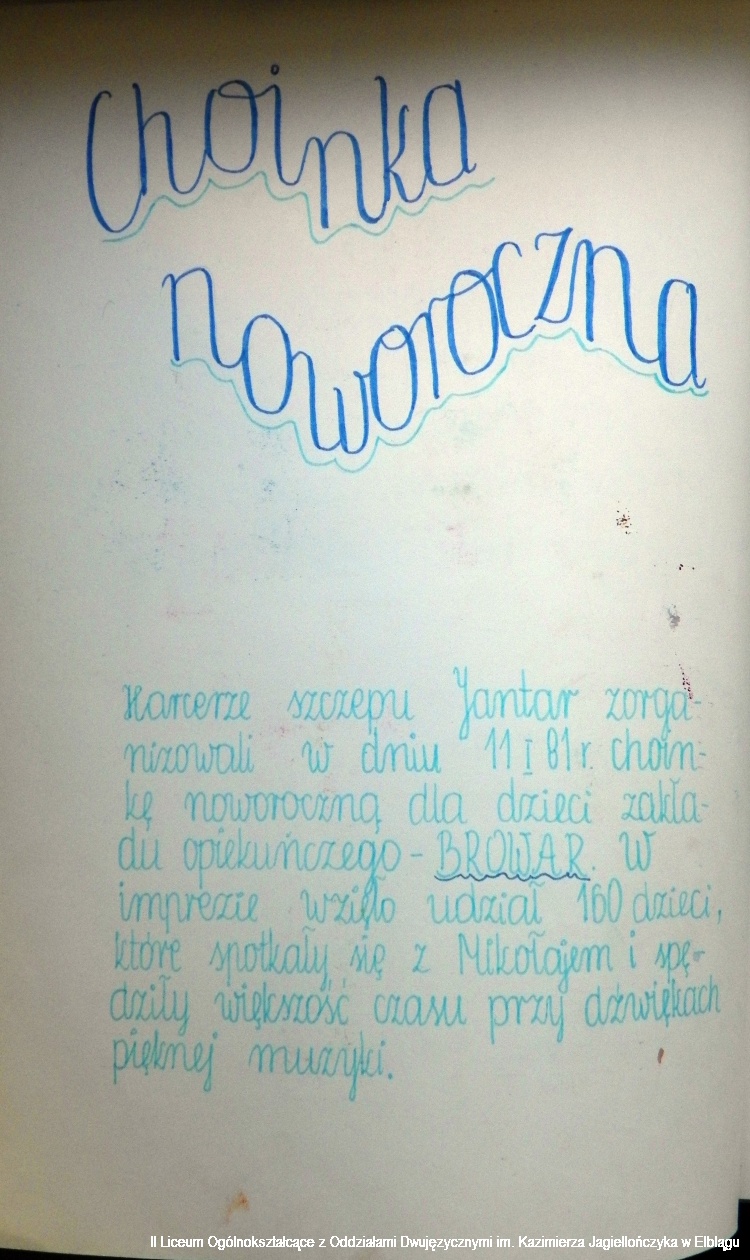 Choinka
noworoczna
Harcerze szczepu Jantar zorga-
nizowali w dniu 11 I 81 r. choin-
kę noworoczną dla dzieci zakła-
du opiekuńczego - BROWAR. W
imprezie wzięło udział 160 dzieci,
które spotkały się z Mikołajem i spę-
dziły większość czasu przy dźwiękach
pięknej muzyki.
II Liceum Ogólnokształcące z Oddziałami Dwujęzycznymi im. Kazimierza Jagiellończyka w Elblągu